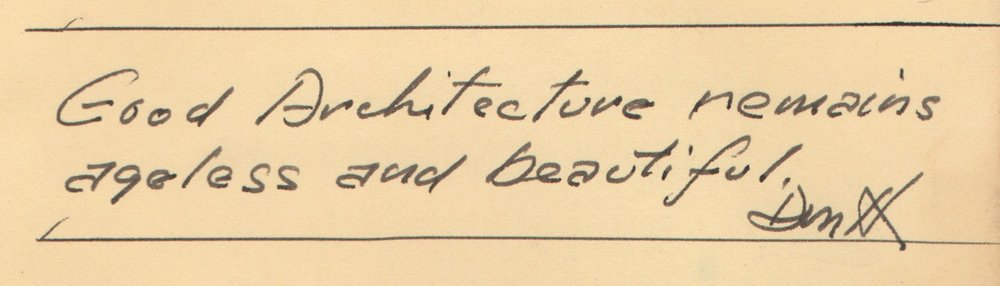 Good Architecture remains
ageless and beautiful.